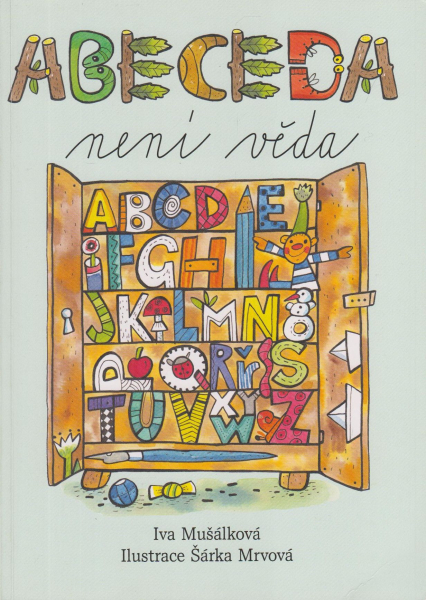 ABECEDA
není věda
ABCDE
FGHI
JKLMNO
PQRřS
TUVXYWZ
Iva Mušálková
Ilustrace Šárka Mrvová